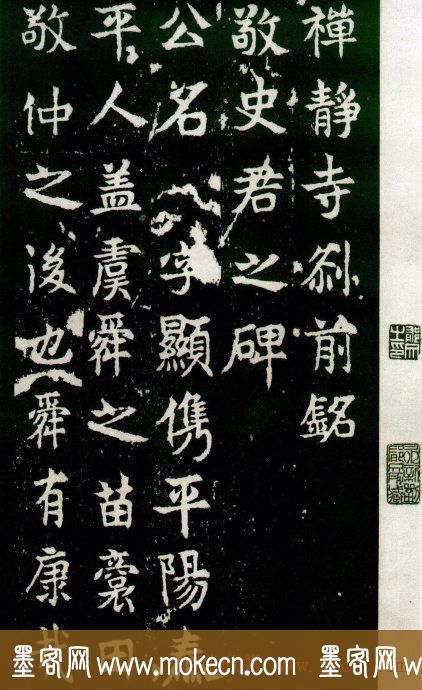 禪靜寺刹前銘
敬史君之碑
公名字顯儁平陽
平人盖虞舜之苗裔
敬仲之後也舜有康
墨客网 www.mokecn.com 墨客网